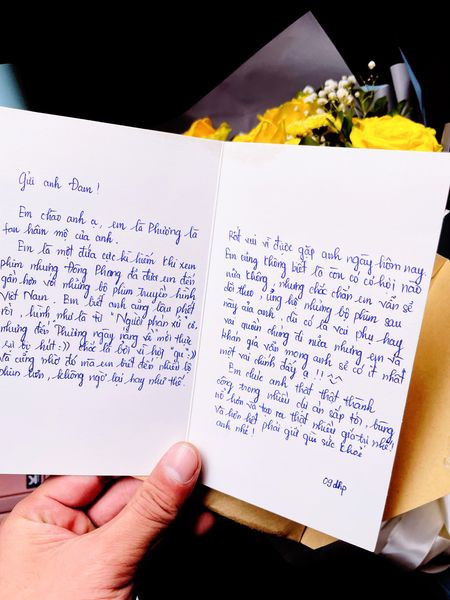 Gửi anh Đam!
Em chào anh ạ, em là Phương là
fan hâm mộ của anh.
Em là một đứa cực kì hiếm khi xem
phim nhưng Đông Phong đã đưa em đến
gần hơn với những bộ phim truyền hình
Việt Nam. Em biết anh cũng lâu phết
rồi, hình như là từ "Người phán xử" cơ,
nhưng đến Phương ngày nắng về mới thực
sự bị hút :)) chắc là bởi vì hơi "quý" :))
Và cũng nhờ đó mà em biết đến nhiều bộ
phim hơn, không ngờ lại hay như thế.
Rất vui vì được gặp anh ngày hôm nay.
Em cũng không biết là còn có cơ hội nào
nữa không, nhưng chắc chắn em vẫn sẽ
dõi theo, ủng hộ những bộ phim sau
này của anh, dù có là vai phụ hay
vai quần chúng đi nữa nhưng em và
khán giả vẫn mong anh sẽ có ít nhất
một vai chính đấy ạ !!! ^^
Em chúc anh thật thật thành
công trong nhiều dự án sắp tới, bùng
nổ hơn và tạo ra thật nhiều giá trị nhé!
Và hơn hết phải giữ gìn sức khỏe
anh nhé!
09dhp